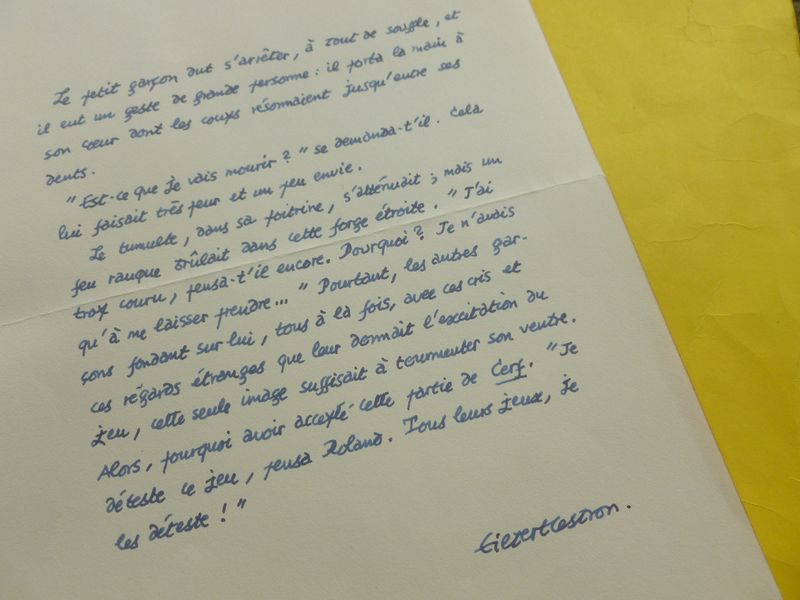 Le petit garçon dut s'arrêter, à bout de souffle, et
il eut un geste de grande personne : il porta la main à
son cœur dont les coups résonnaient jusqu'entre ses
dents.
"Est-ce que je vais mourir ?" se demanda-t'il. Cela
lui faisait très peur et un peu envie.
Le tumulte, dans sa poitrine, s'atténuait ; mais un
feu rauque brûlait dans cette forge étroite. "J'ai
trop couru, pensa-t'il encore. Pourquoi ? Je n'avais
qu'à me laisser prendre..." Pourtant, les autres gar-
çons fondant sur lui, tous à la fois, avec ces cris et
ces régards étranges que leur donnait l'excitation du
jeu, cette seule image suffisait à tourmenter son ventre.
Alors, pourquoi avoir accepté cette partie de Cerf. "Je
déteste ce jeu, pensa Roland. Tous leurs jeux, je
les déteste !"